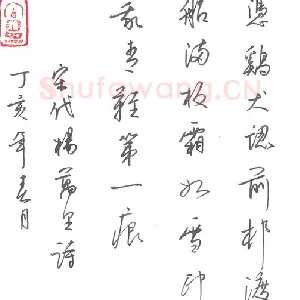 凭鸡犬认前邨渡
船满板霜如雪印
我青鞋第一痕
宋代杨萬里诗
丁亥年春月
Shufawang.CN